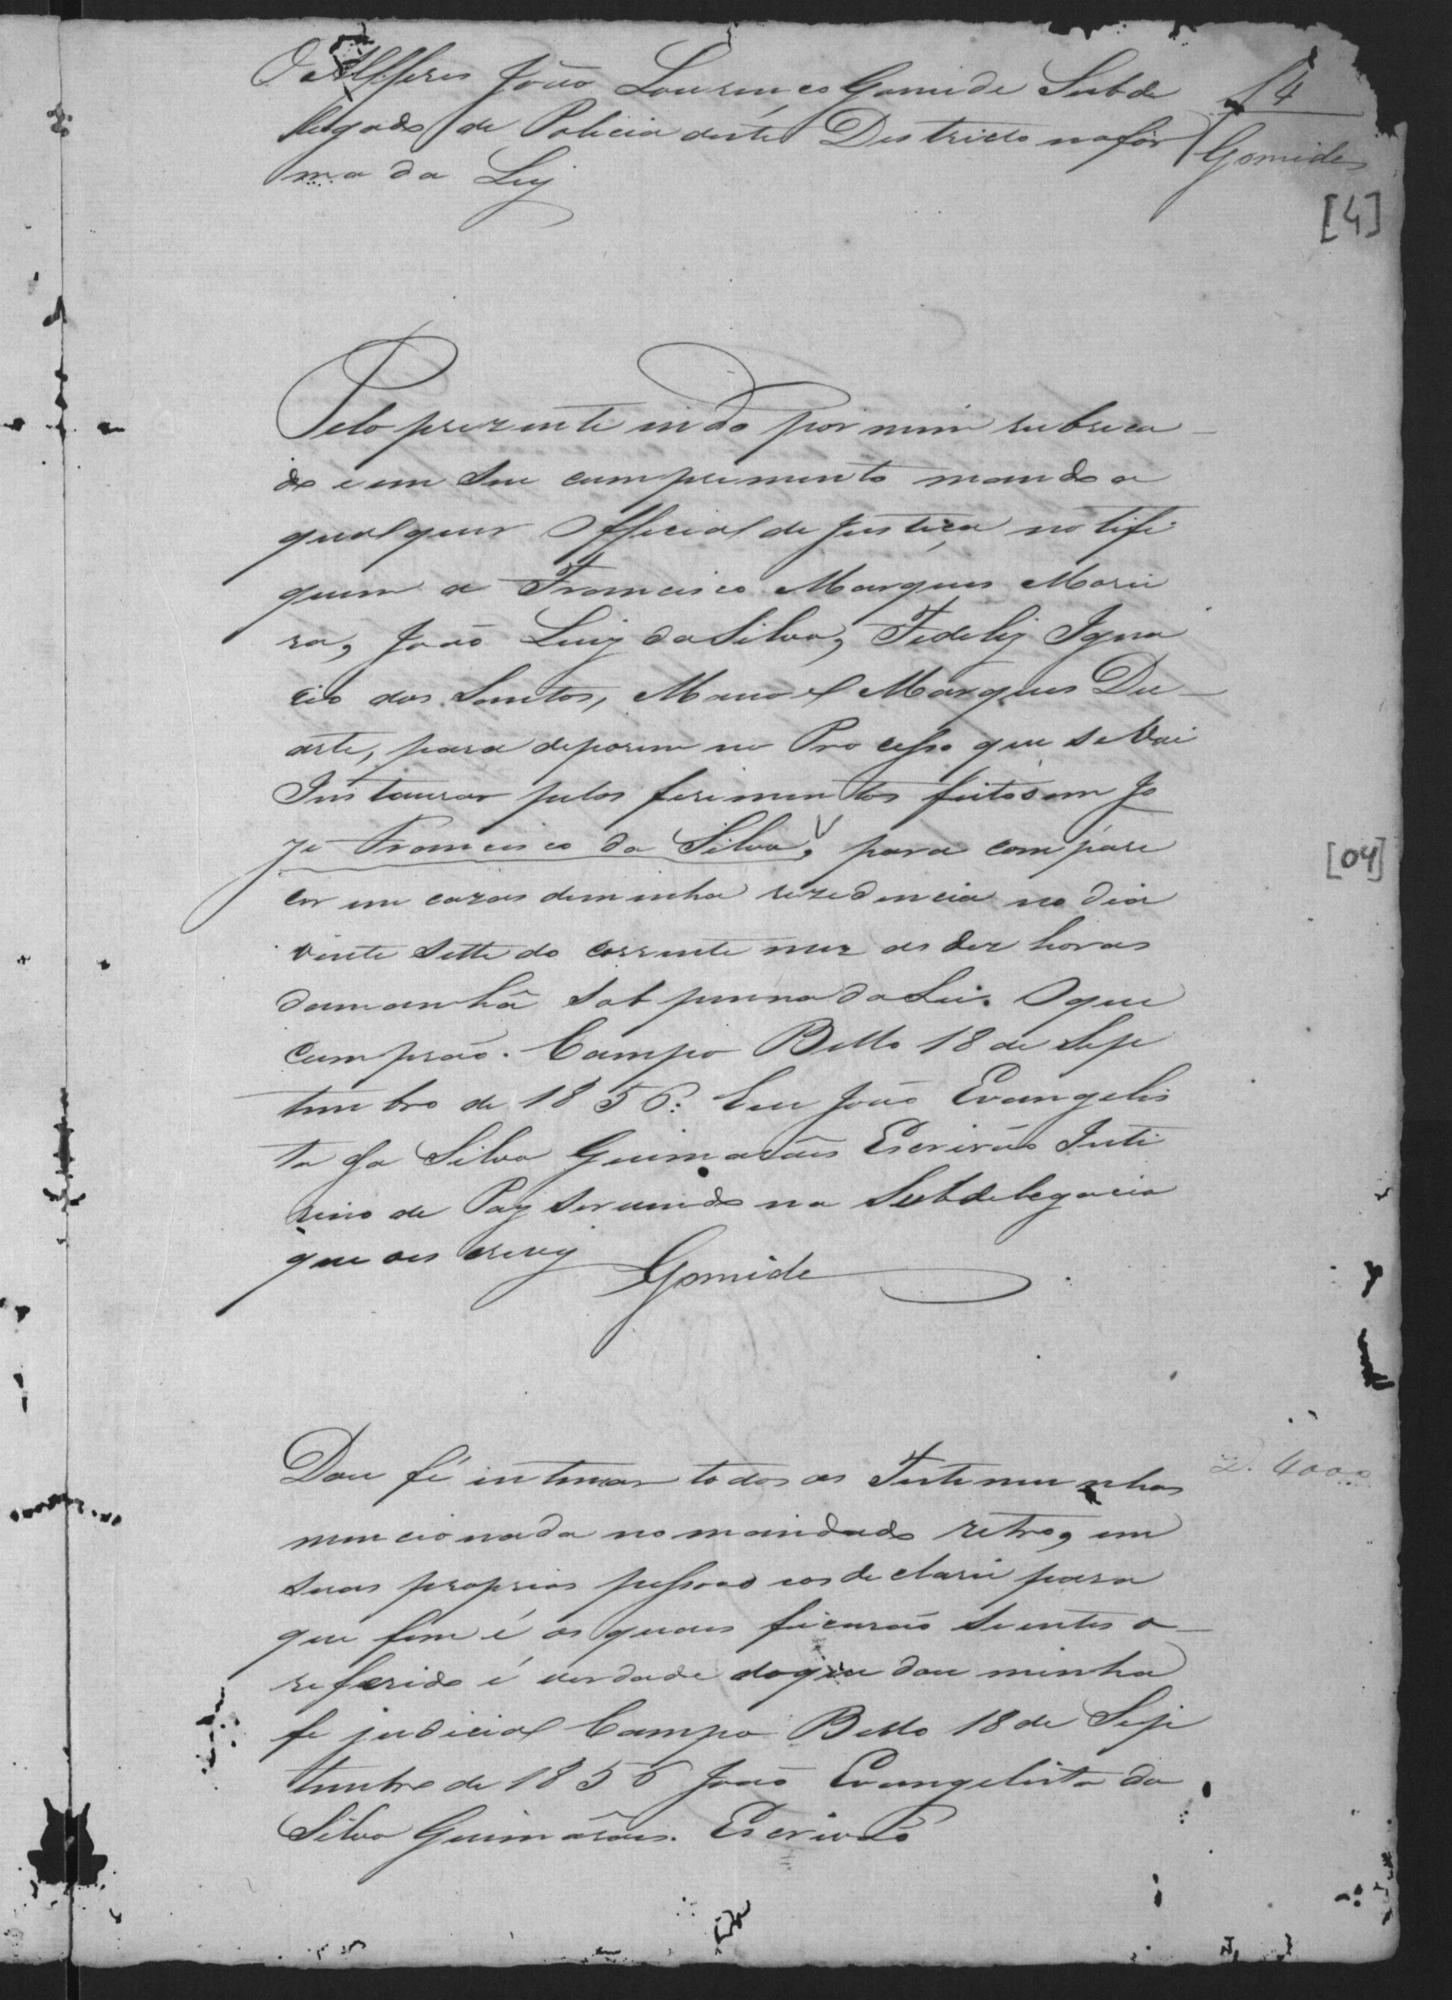 O Alferes João Lourenço Gomide Subde
legado de Policia deste Destricto na for
ma da Ley
4
Gomide
[4]
Pelo prezente indo por mim rubrica
do e em seu cumprimento mando a
qualquer Official de Justiça notefi
quem a Francisco Marques Morei
ra, João Luiz da Silva, Fidelis Igna
cio dos Santos, Manoel Marques Du
arte, para deporem no Processo que se vai
Instaurar pelos ferimentos feitos em Jo
zé Francisco da Silva, para compare
cer em cazas de minha rezedencia no dia
vinte sette do corrente mez as dez horas
[04]
damanhã sob penna da Lei. O que
cumprão. Campo Bello 18 de Sep
tembro de 1856. Eu João Evangelis
ta da Silva Guimarães Escrivão Inte
rino de Paz servindo na Subdelegacia
que o escrevy
Gomide
Dou fé intimar todos as Testemunhas
mencionada no mandado retro, em
suas proprias pessoas e os declarei para
que fim é os quaes ficarão sientes o
referido é verdade do que dou minha
fe judicial Campo Bello 18 de Sep
tembro de 1856 João Evangelista da
Silva Guimarães. Escrivão
2. 4000